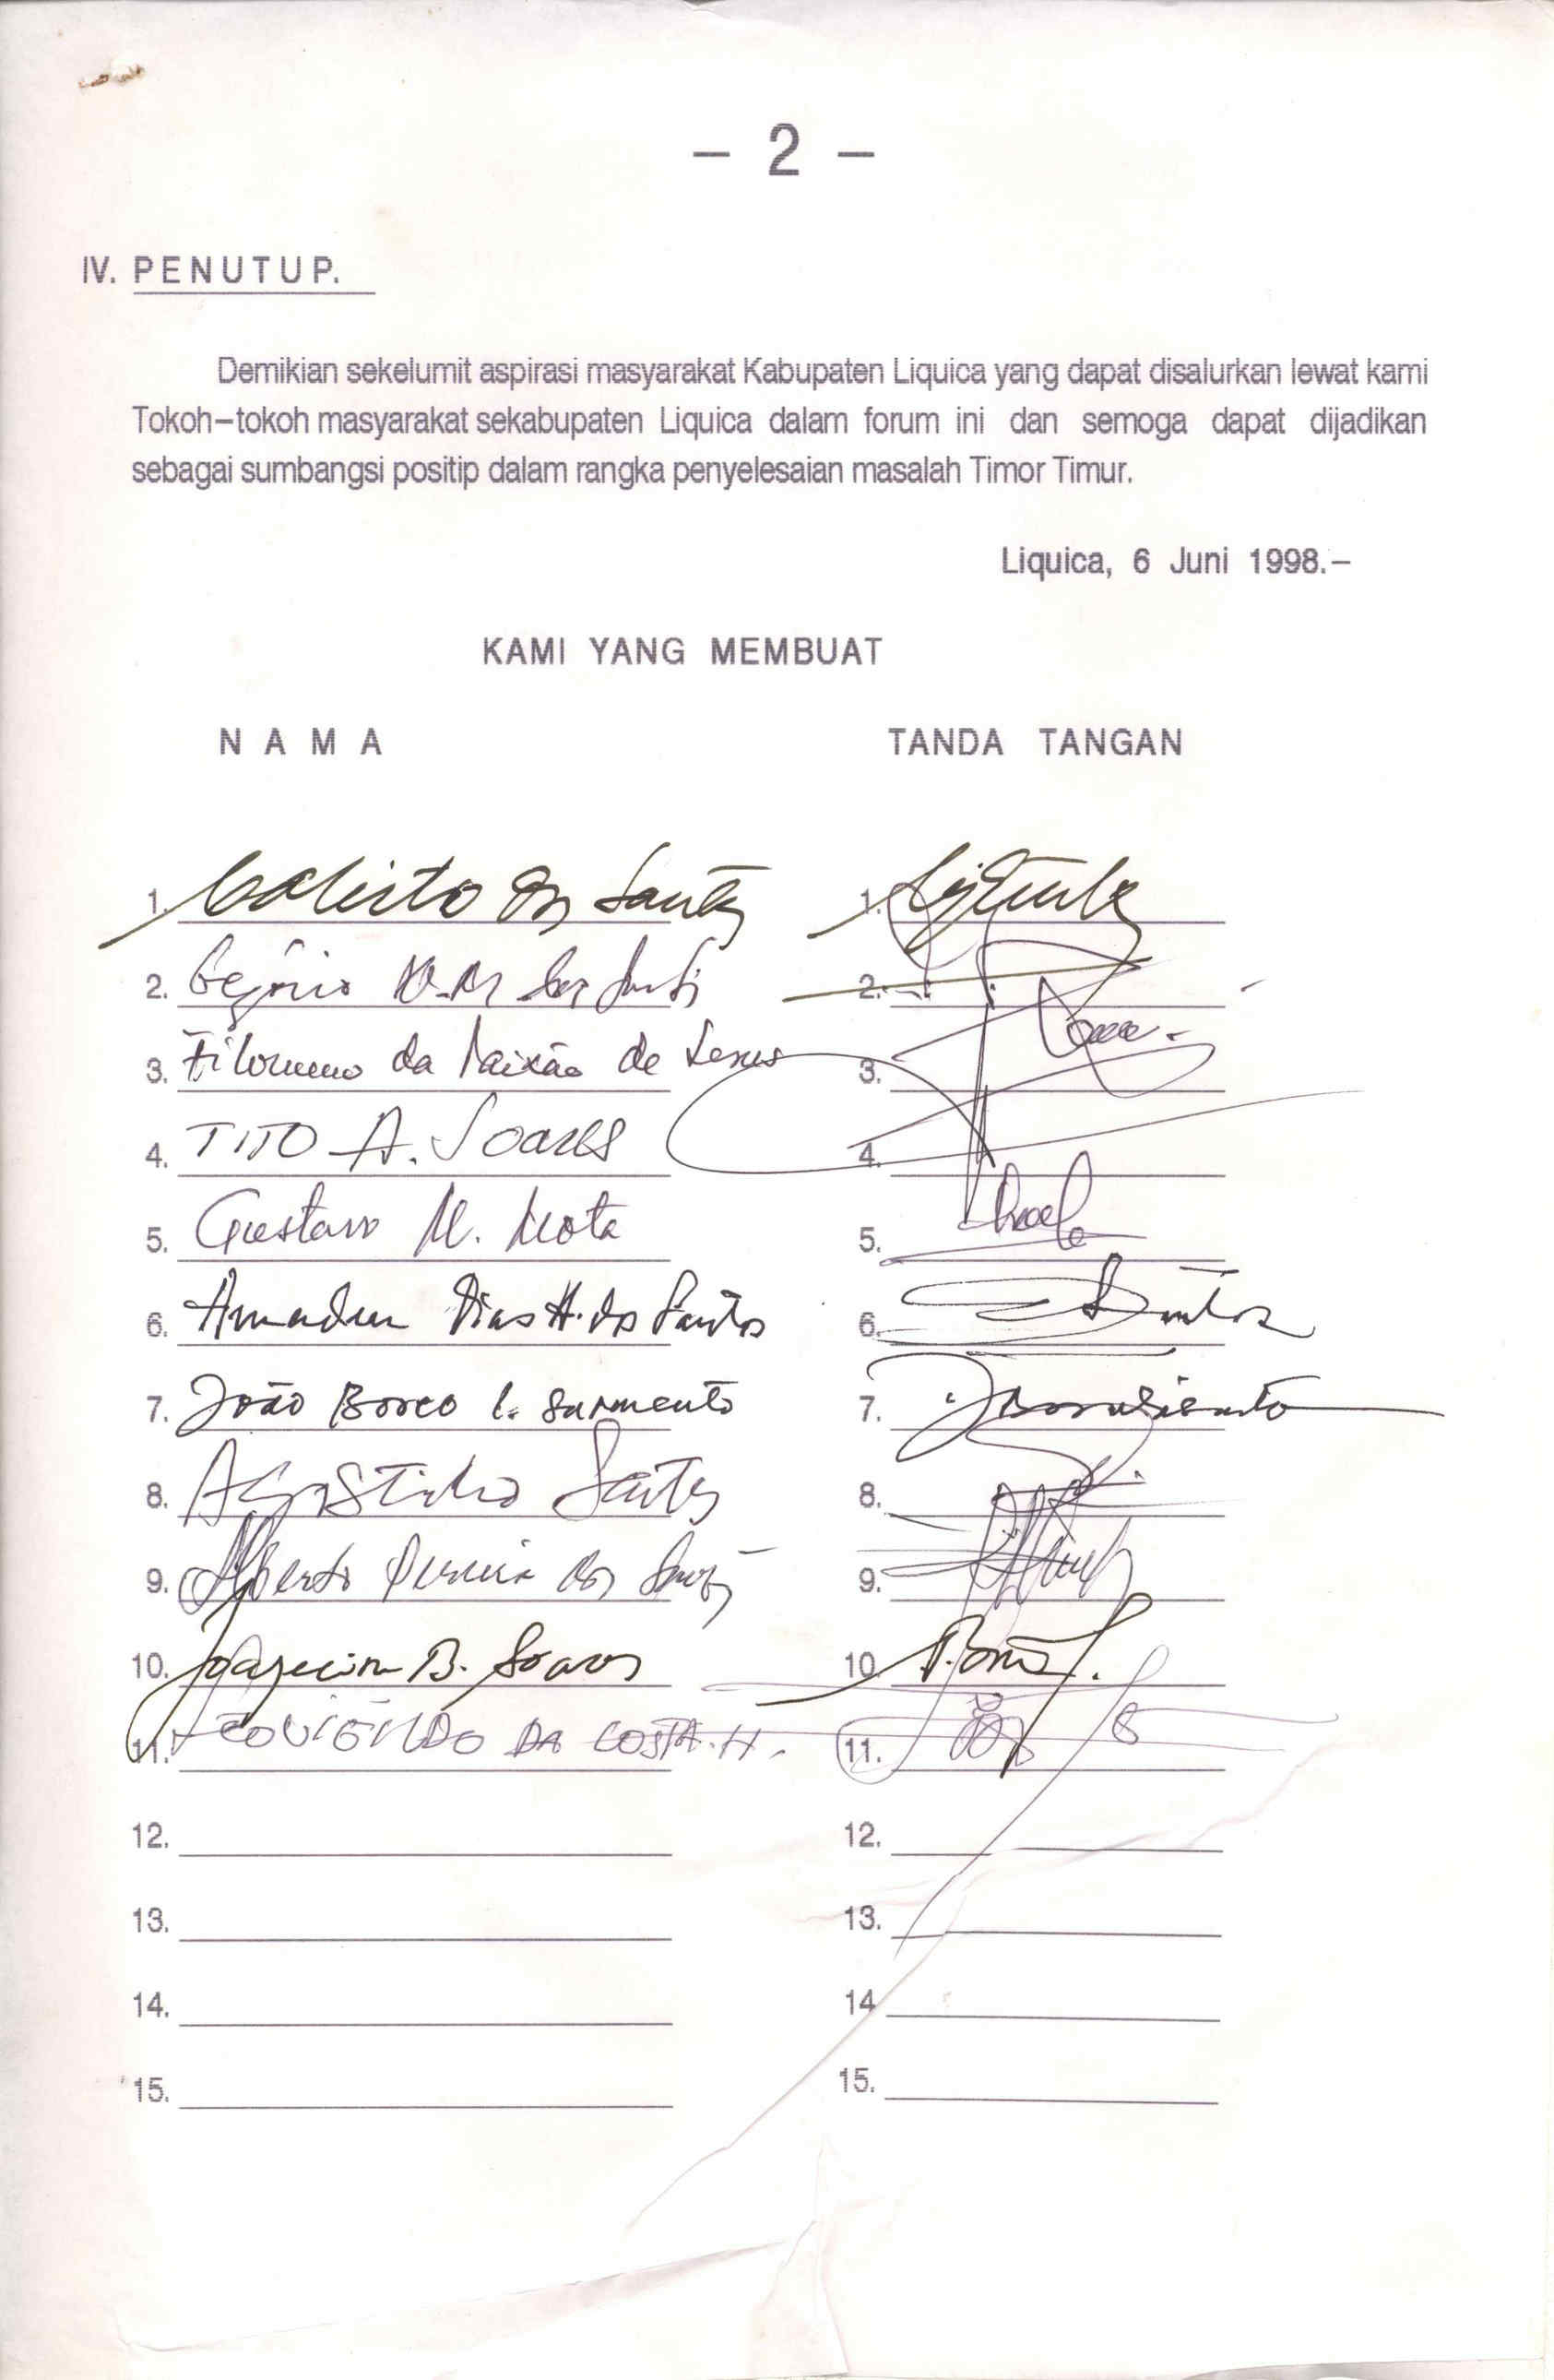 – 2 –
IV. PENUTUP.
Demikian sekelumit aspirasi masyarakat Kabupaten Liquica yang dapat disalurkan lewat kami
Tokoh–tokoh masyarakat sekabupaten Liquica dalam forum ini dan semoga dapat dijadikan
sebagai sumbangsi positip dalam rangka penyelesaian masalah Timor Timur.
Liquica, 6 Juni 1998.–
KAMI YANG MEMBUAT
NAMA TANDA TANGAN
1. dos Santos 1.
2. 2.
3. Filomeno da Paixão de Jesus 3.
4. TITO A. Soares 4.
5. Gustavo M. Mota 5.
6. Amadeu Dias H. dos Santos 6.
7. João Bosco C. Sarmento 7.
8. Agostinho Santos 8.
9. Alberto Pereira dos Santos 9.
10. B. Soares 10.
11. DA COSTA. H. 11.
12. 12.
13. 13.
14. 14
15. 15.